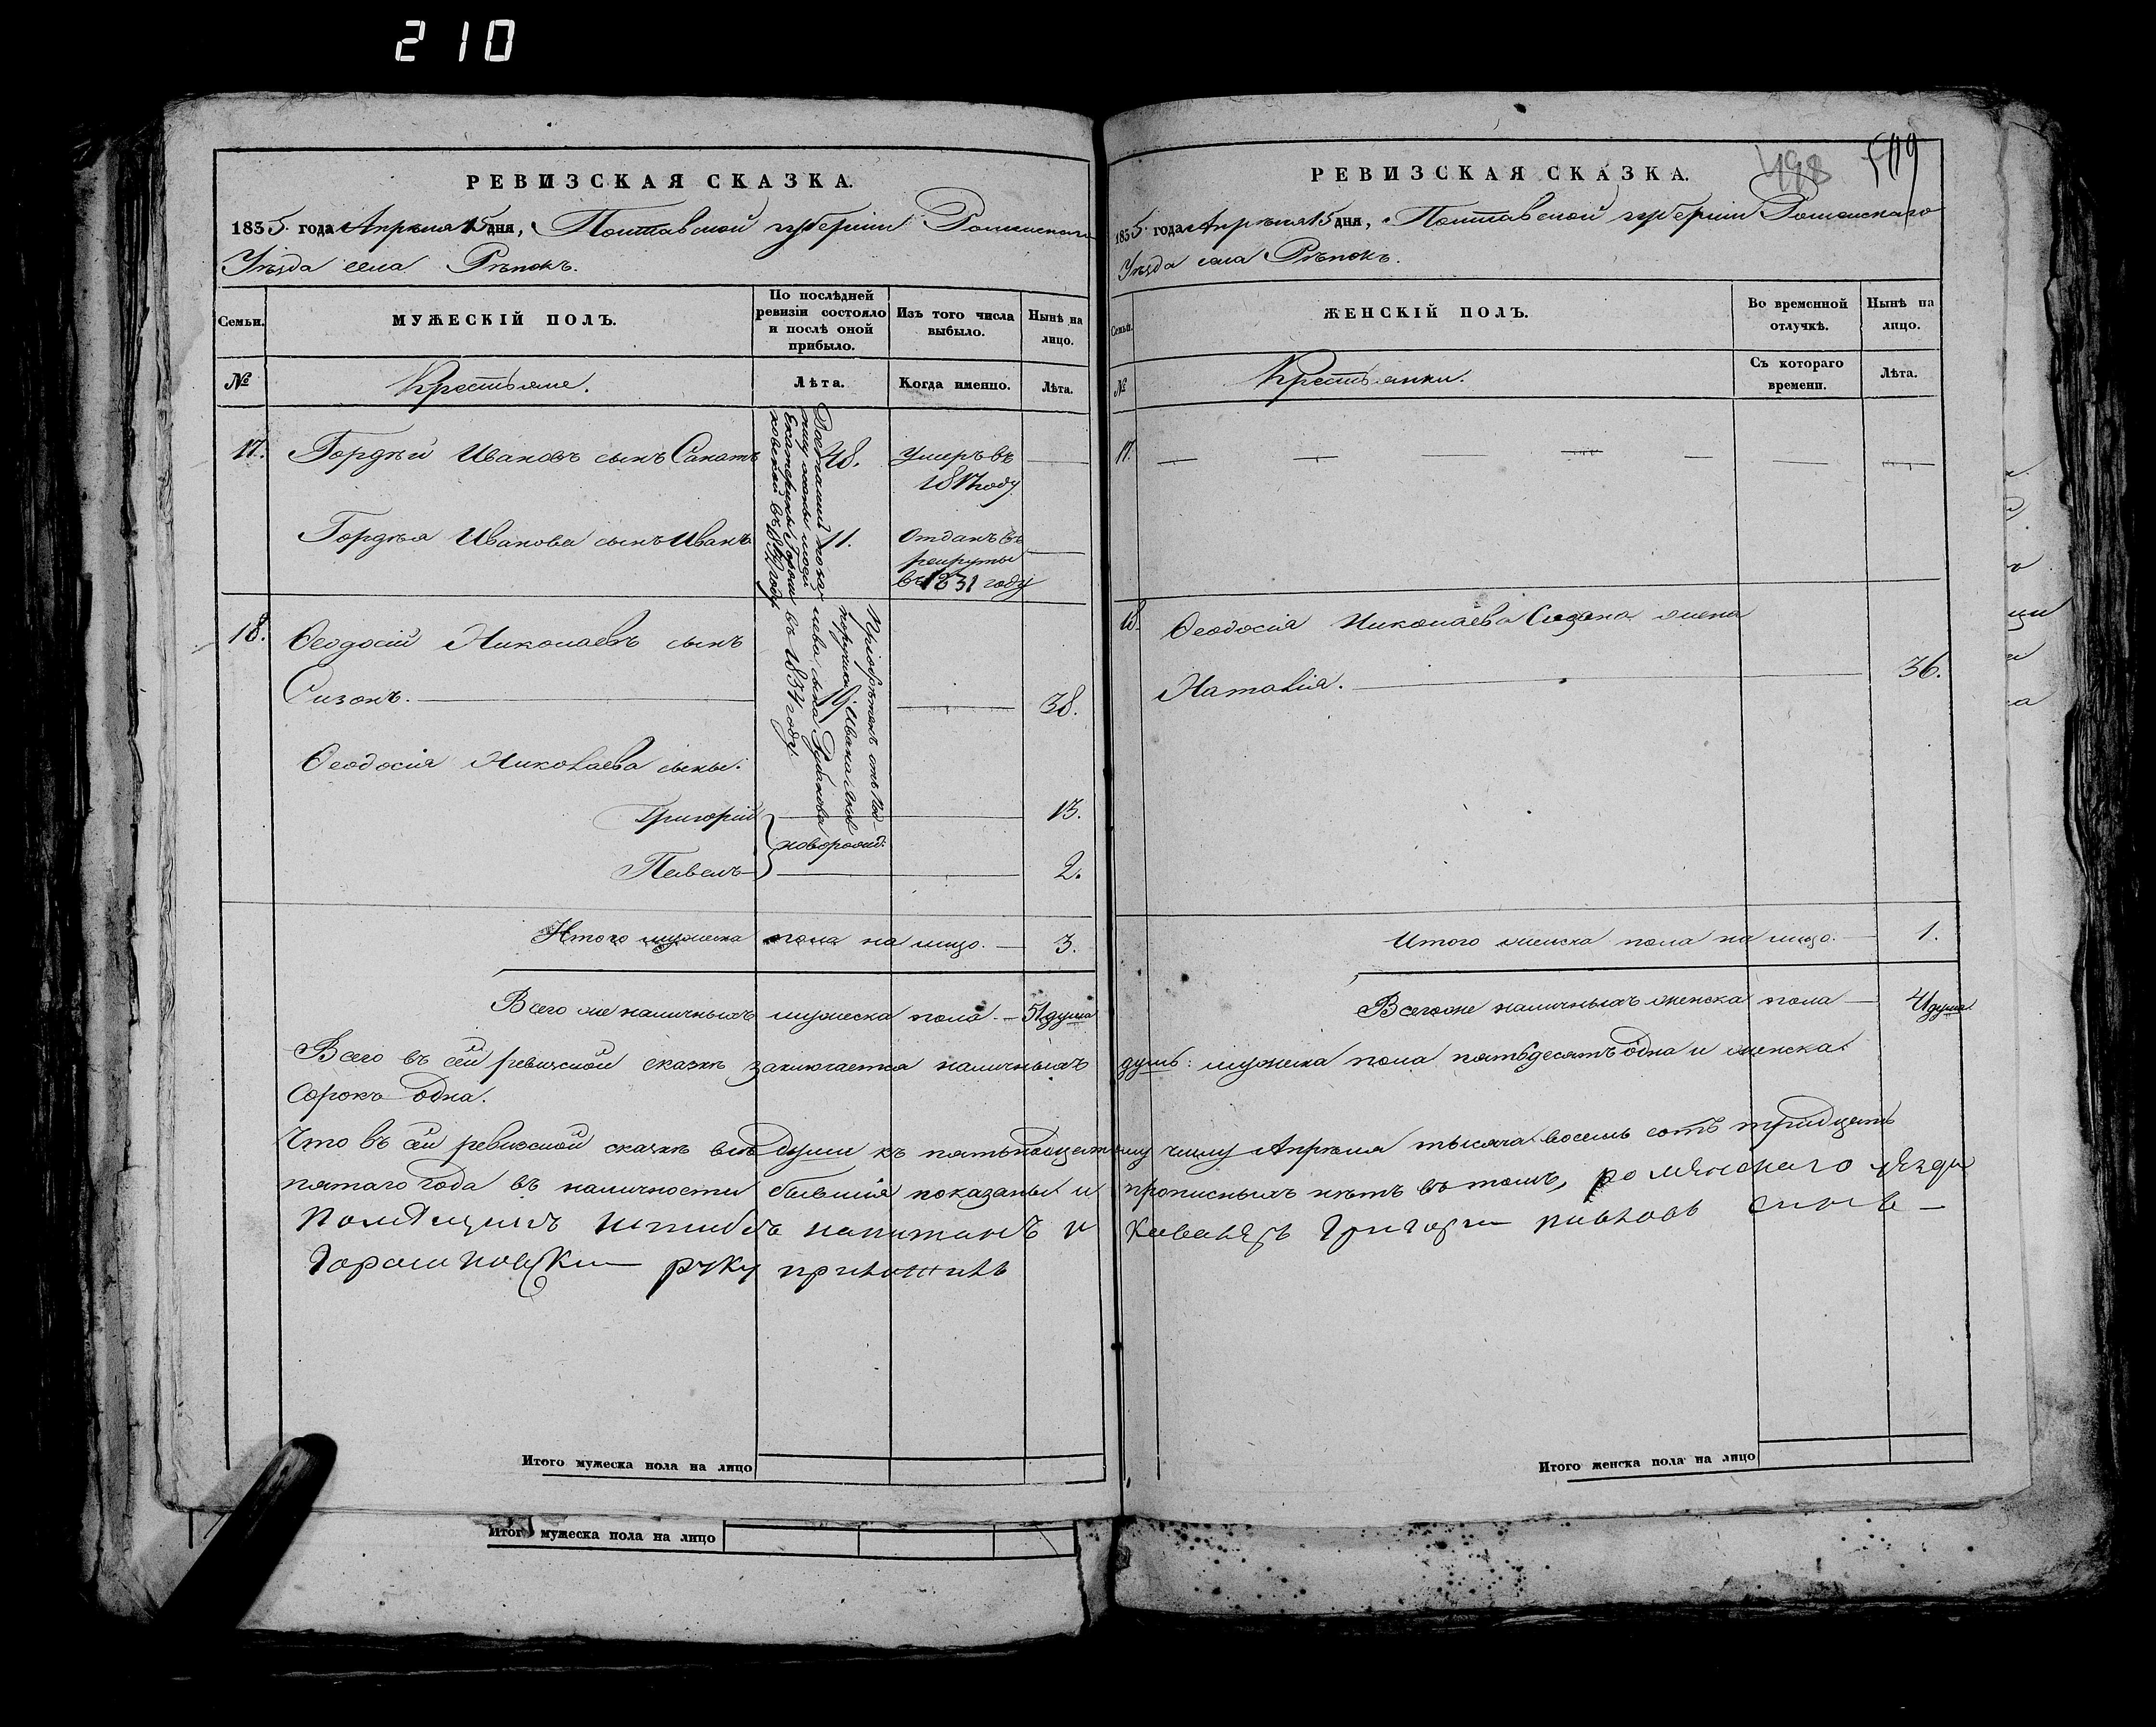 210
РЕВИЗСКАЯ СКАЗКА.
1835 года Апрѣля 15 дня, Полтавской губерніи Роменскаго
Уѣзда села Рѣпокъ.
Семьи.
МУЖЕСКІЙ ПОЛЪ.
По послѣдней
ревизіи состояло
и послѣ оной
прибыло.
Изъ того числа
выбыло.
Нынѣ на
лицо.
№
Крестьяне.
Лѣта.
Когда именно.
Лѣта.
17.
Гордѣй Ивановъ сынъ
48.
Умеръ въ
1817 году
Гордѣя Иванова сынъ Иванъ
11.
Отданъ въ
рекруты
въ 1831 году
18.
Ѳеодосій Николаевъ сынъ
Сизонъ.
38.
въ 1834 году
Ѳеодосія Николаева сыны.
Григорій
13.
новорожд:
Павелъ
2.
Итого мужеска пола на лицо. — 3.
Всего же наличныхъ мужеска пола. — 51 душа
Всего въ сей ревизской сказкѣ заключается наличныхъ
Сорокъ одна.
Что въ сей ревизской сказкѣ всѣ души къ пятьнадцатому
пятаго года въ наличности бывшія показаны и
Помѣщикъ штабсъ капитанъ и
руку приложилъ
Итого мужеска пола на лицо
Итого мужеска пола на лицо
498 509
РЕВИЗСКАЯ СКАЗКА.
1835 года Апрѣля 15 дня, Полтавской губерніи Роменскаго
Уѣзда села Рѣпокъ.
Семьи.
ЖЕНСКІЙ ПОЛЪ.
Во временной
отлучкѣ.
Нынѣ на
лицо.
№
Крестьянки.
Съ котораго
времени.
Лѣта.
17.
18.
Ѳеодосія Николаева Сизона жена
Наталія.
36.
Итого женска пола на лицо. 1.
Всего же наличныхъ женска пола — 41 душа.
душъ: мужеска пола пятьдесятъ одна и женска
числу Апрѣля тысяча восемь сотъ тридцать
прописныхъ нѣтъ въ томъ, роменскаго уезда
Кавалеръ Григори павловъ сынъ —
Итого женска пола на лицо